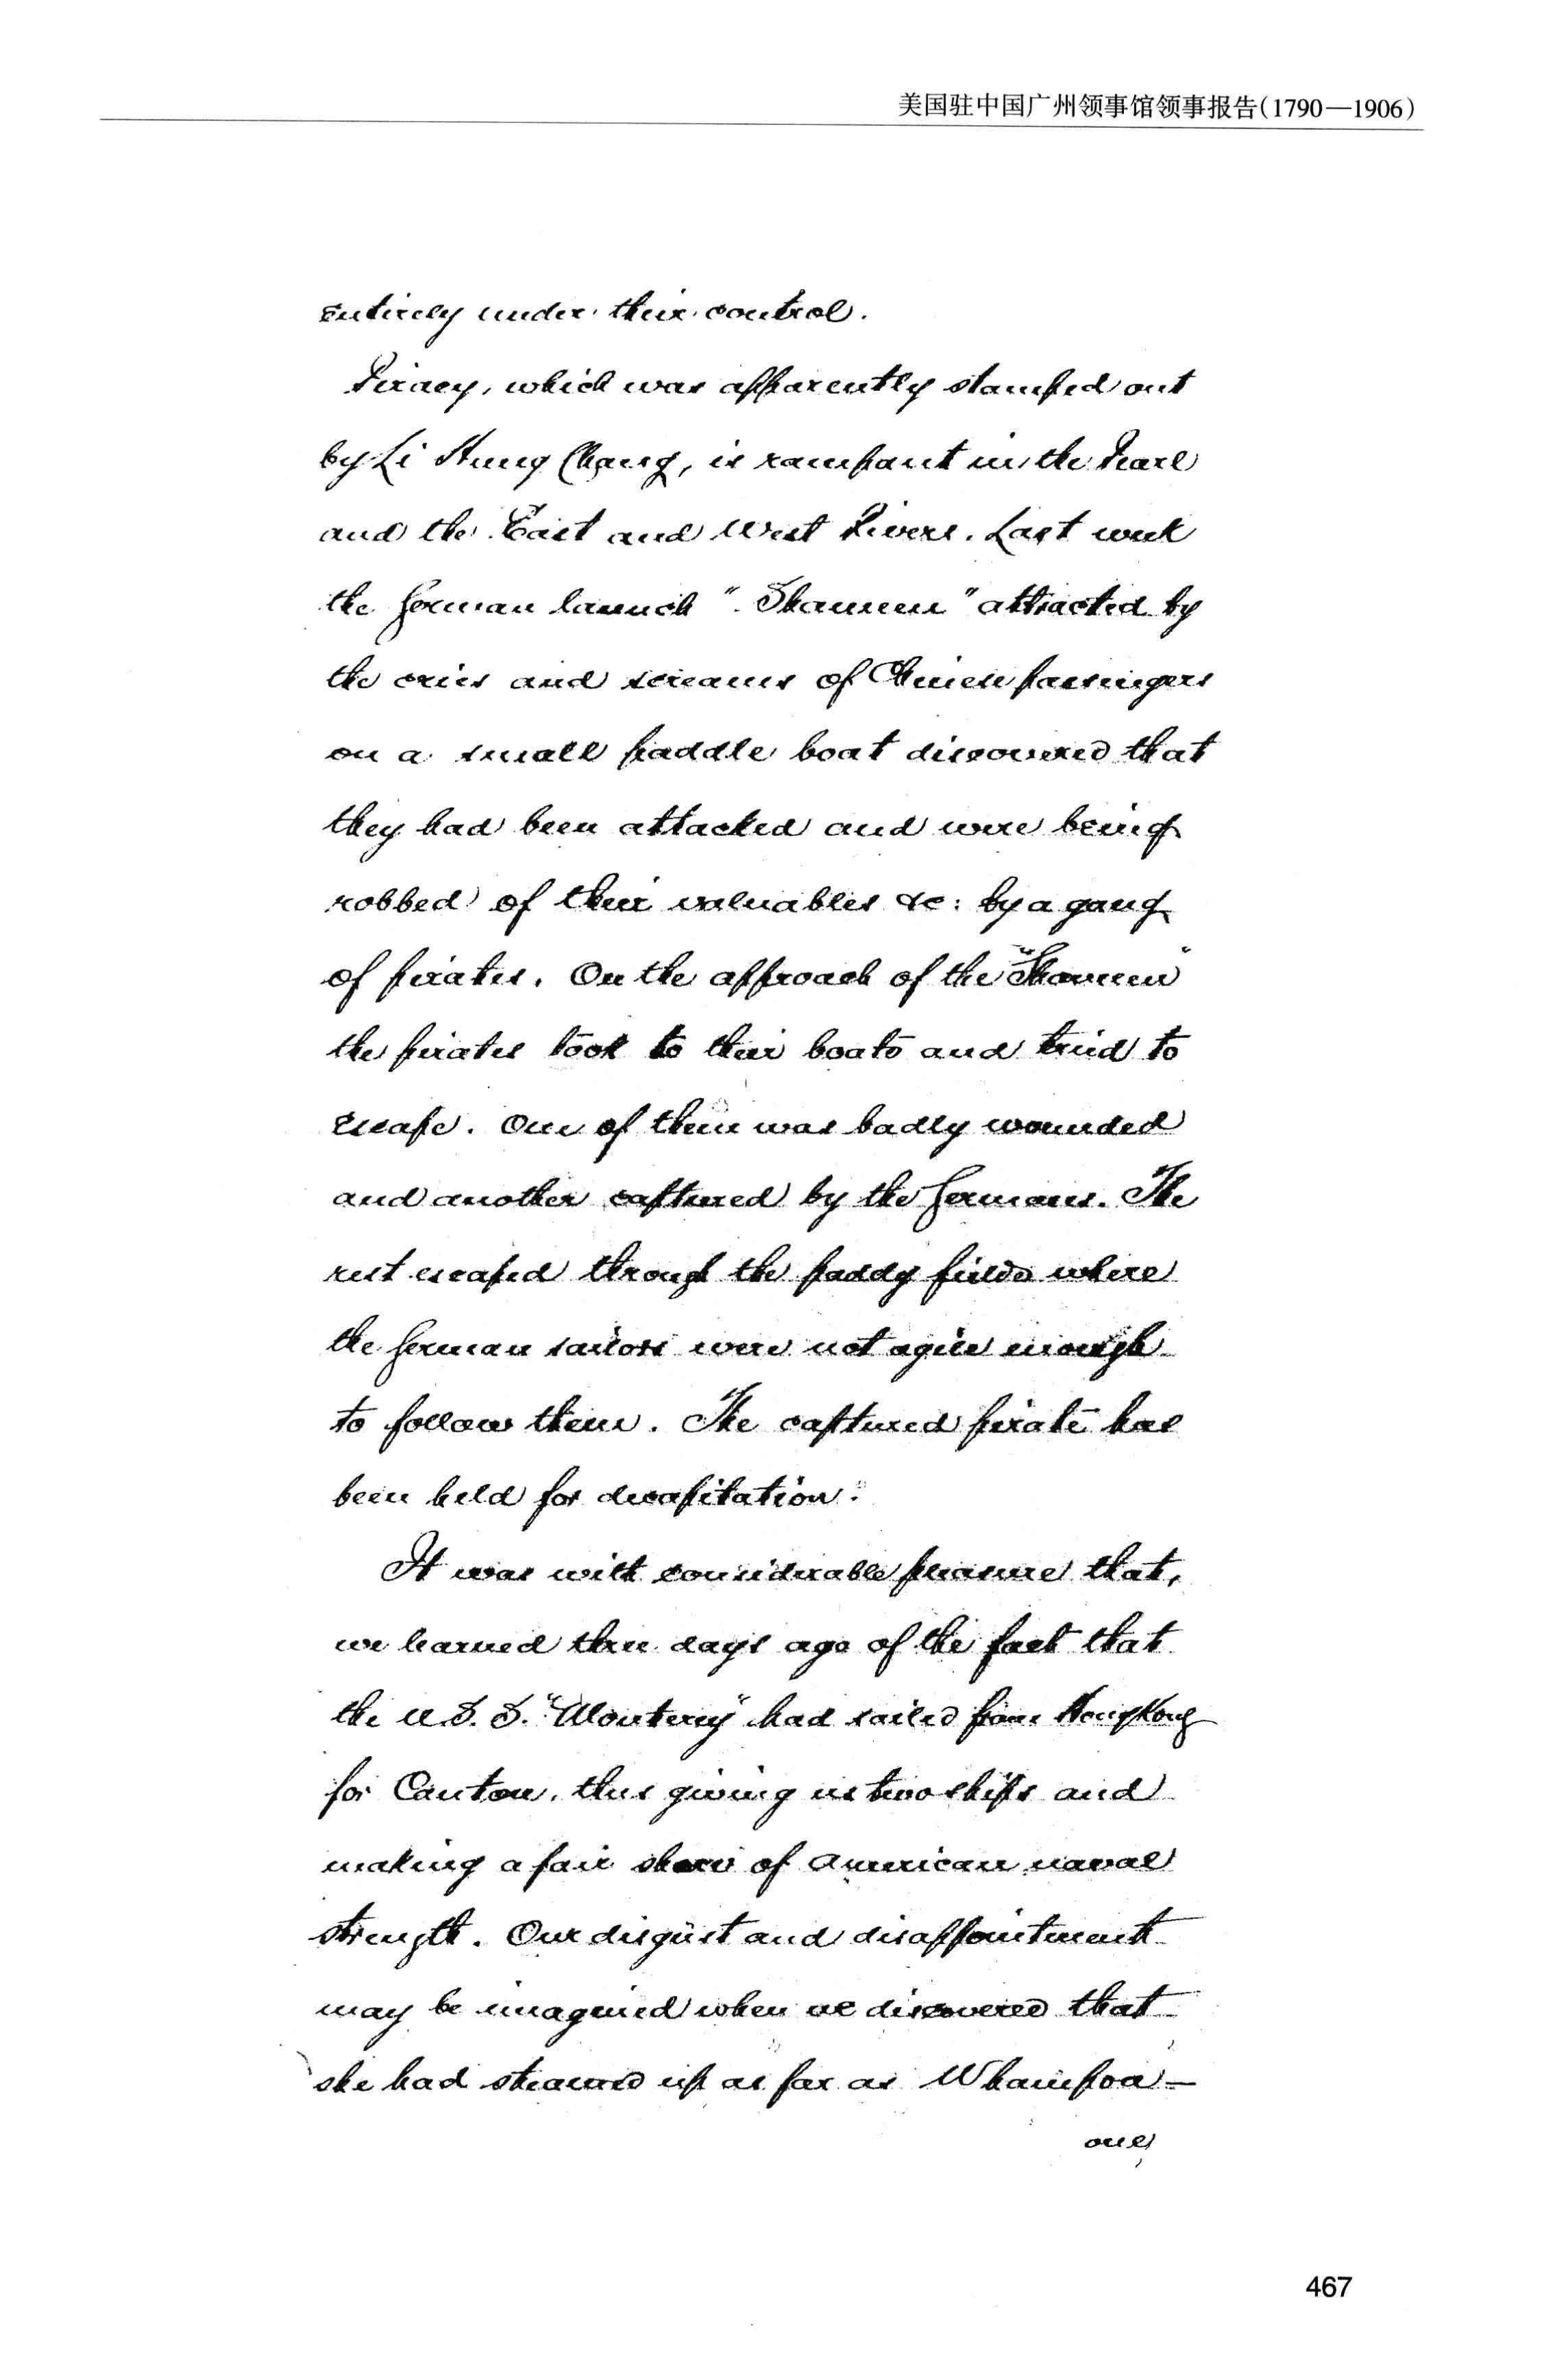 美国驻中国广州领事馆领事报告(1790—1906)
entirely under their control.
Piracy, which was apparently stamped out
by Li Hung Chang, is rampant in the Pearl
and the East and West Rivers. Last week
the German launch "Shameen" attracted by
the cries and screams of Chinese passengers
on a small paddle boat discovered that
they had been attacked and were being
robbed of their valuables &c: by a gang
of pirates. On the approach of the "Shameen"
the pirates took to their boats and tried to
escape. One of them was badly wounded
and another captured by the Germans. The
rest escaped through the paddy fields where
the German sailors were not agile enough
to follow them. The captured pirate has
been held for decapitation.
It was with considerable pleasure that,
we learned three days ago of the fact that
the U.S.S. "Monterey" had sailed from HongKong
for Canton, thus giving us two ships and
making a fair show of American naval
strength. Our disgust and disappointment
may be imagined when we discovered that
she had steamed up as far as Whampoa—
one
467